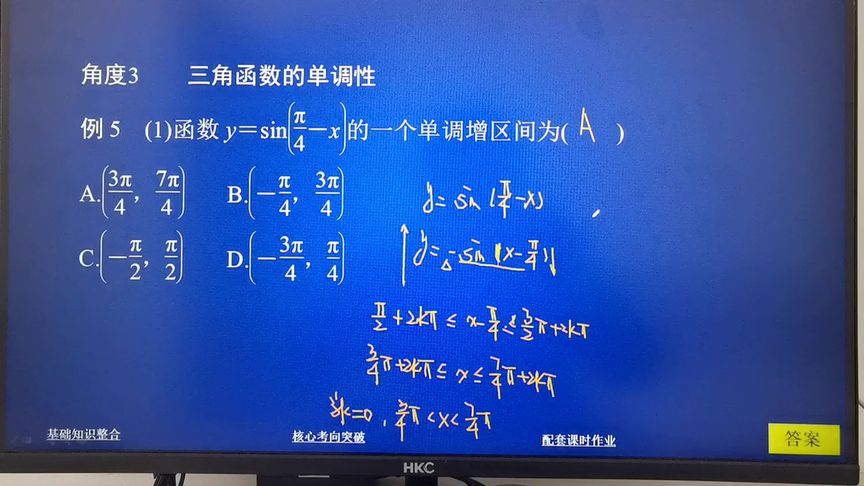 角度3 三角函数的单调性
例5 (1)函数 y=sin(π/4-x)的一个单调增区间为( A )
A.(3π/4, 7π/4) B.(-π/4, 3π/4)
C.(-π/2, π/2) D.(-3π/4, π/4)
y=sin(π/4-x)
↑y=-sin(x-π/4)↓
π/2+2kπ≤x-π/4≤3/2π+2kπ
3/4π+2kπ≤x≤7/4π+2kπ
当k=0,3/4π<x<7/4π
基础知识整合 核心考向突破 配套课时作业 答案
HKC